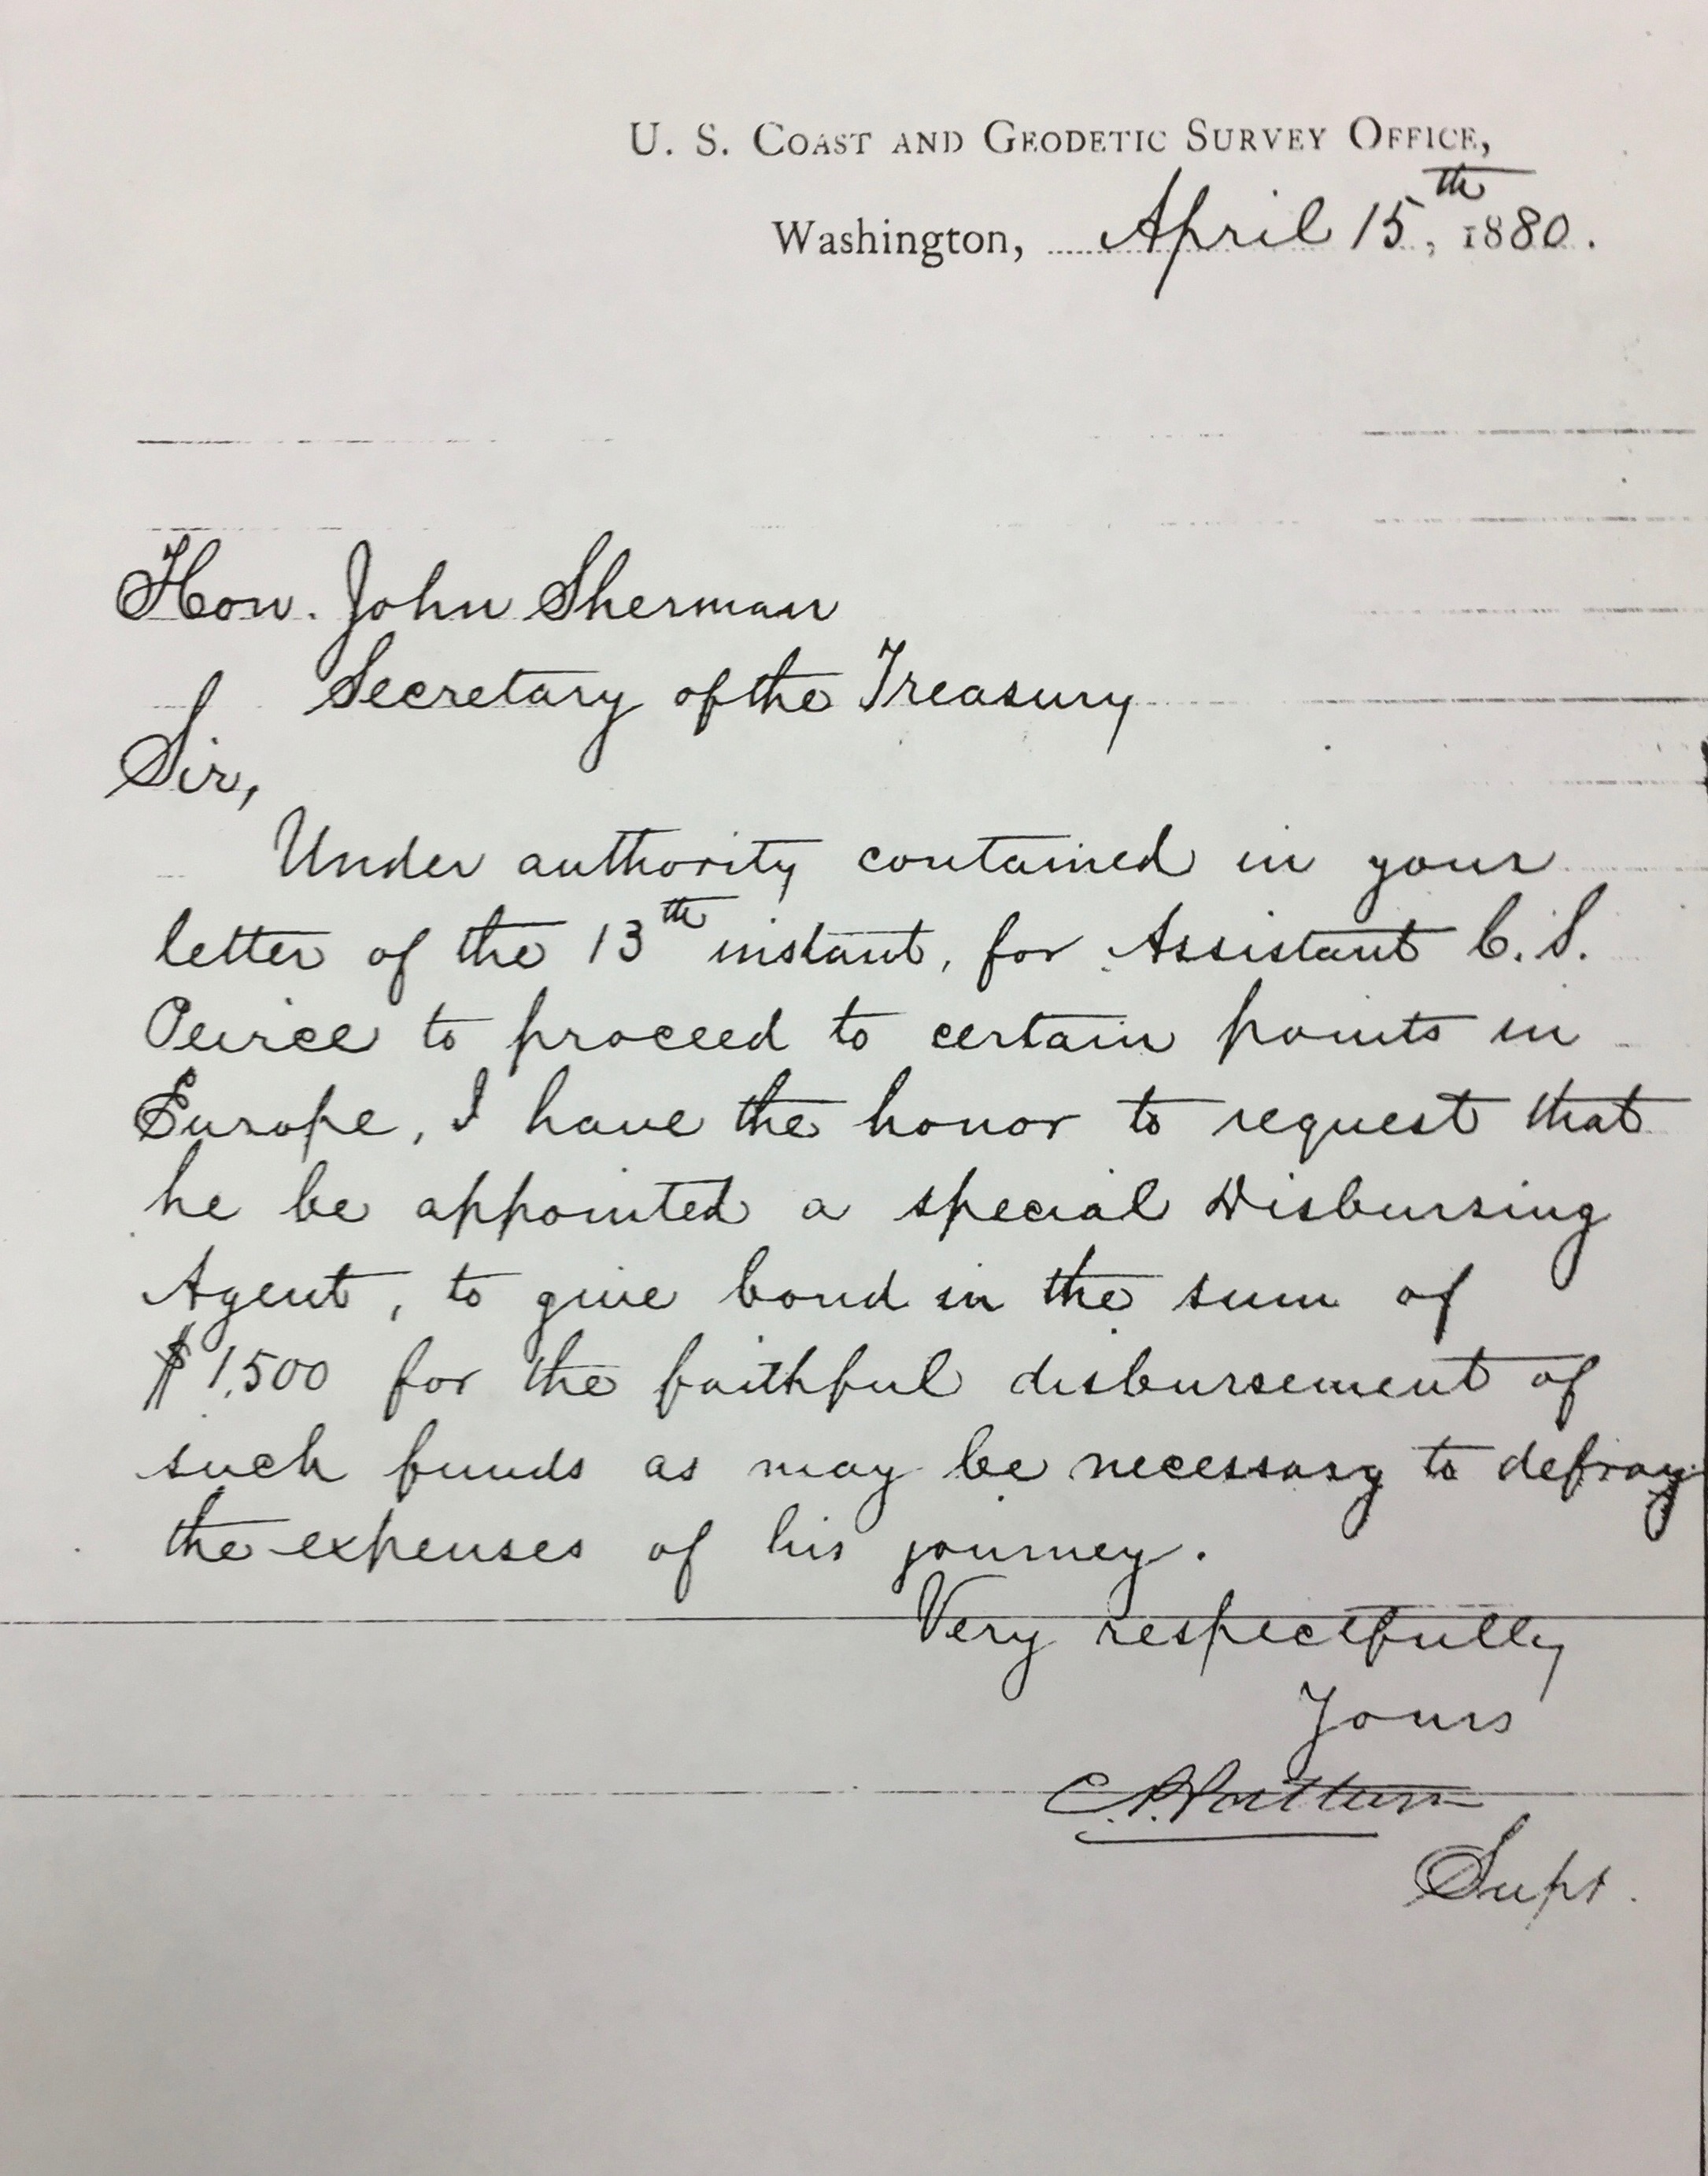 U. S. COAST AND GEODETIC SURVEY OFFICE,
Washington, April 15th, 1880.
Hon. John Sherman
Secretary of the Treasury
Sir,
Under authority contained in your
letter of the 13th instant, for Assistant C. S.
Peirce to proceed to certain points in
Europe, I have the honor to request that
he be appointed a special Disbursing
Agent, to give bond in the sum of
$1,500 for the faithful disbursement of
such funds as may be necessary to defray
the expenses of his journey.
Very respectfully
Yours
C. P. Patterson
Supt.